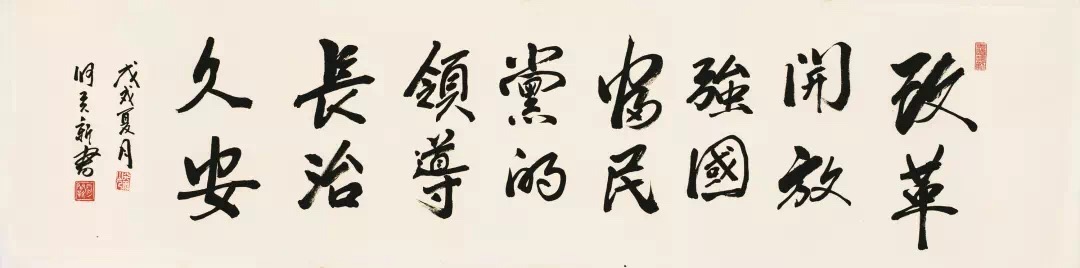 改革
開放
強國
富民
黨的
領導
長治
久安
戊戌夏月
新書